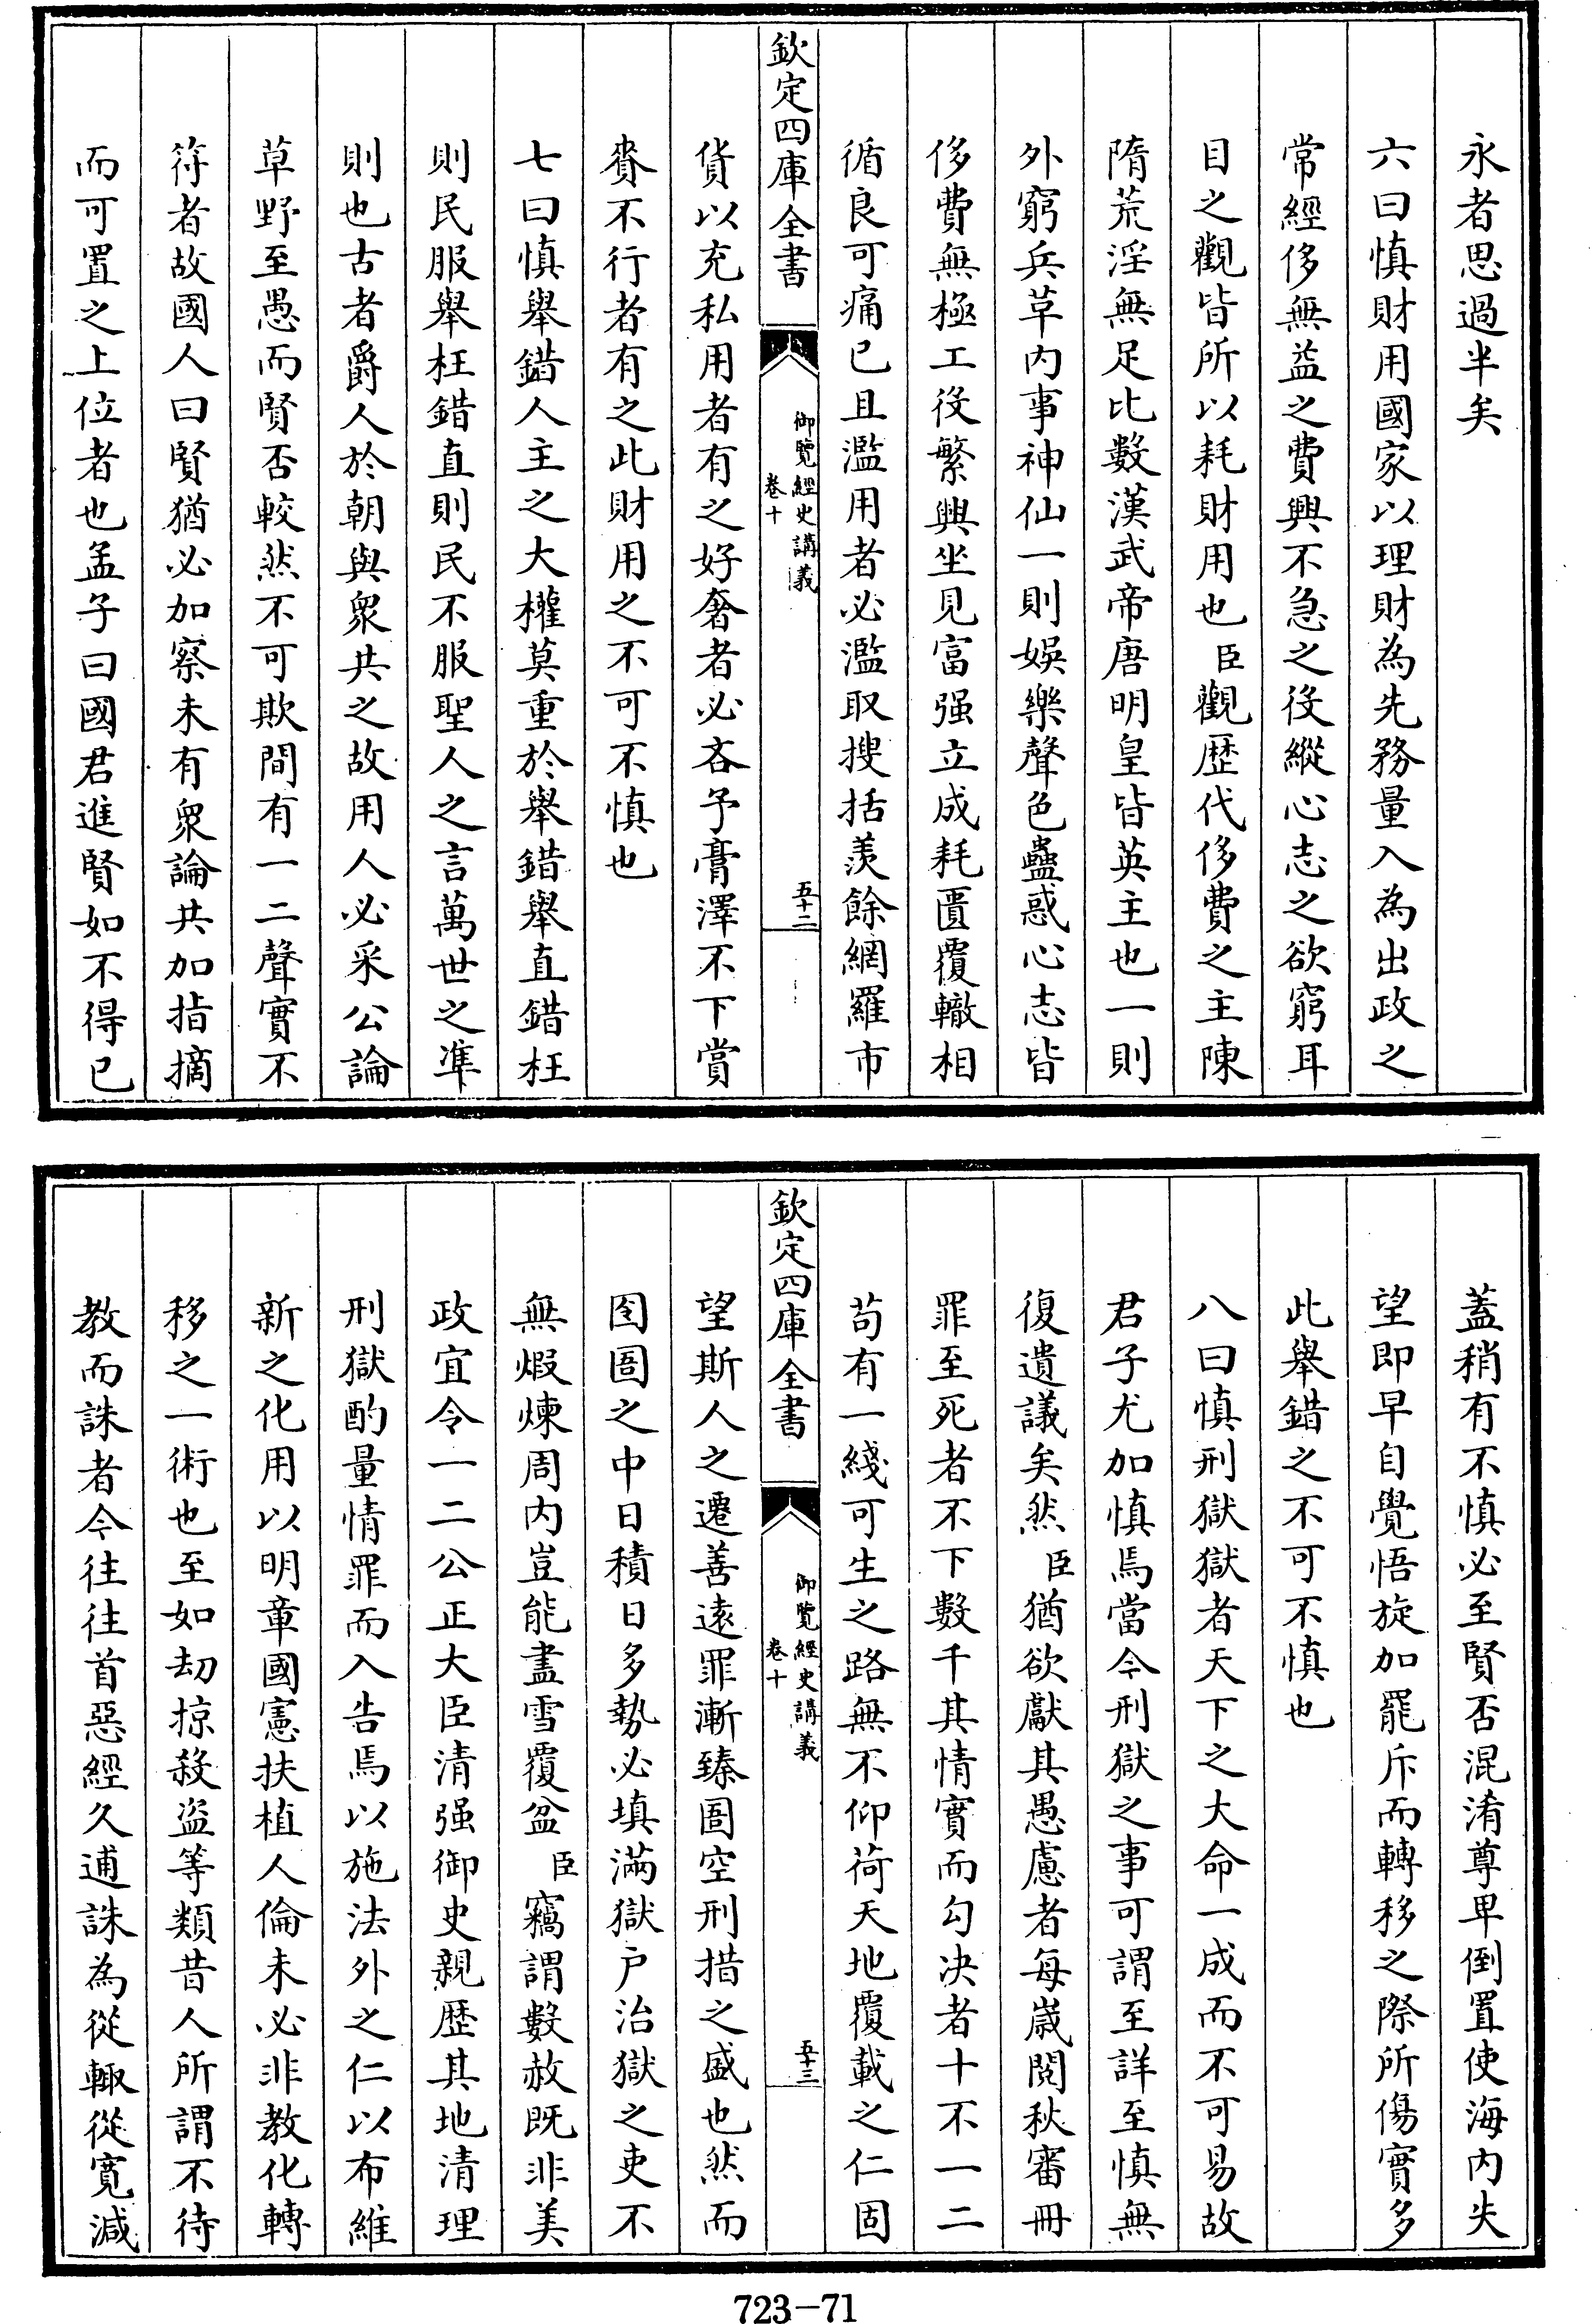 永者思過半矣
六曰慎財用國家以理財為先務量入為出政之
常經侈無益之費興不急之役縱心志之欲窮耳
目之觀皆所以耗財用也臣觀歷代侈費之主陳
隋荒淫無足比數漢武帝唐明皇皆英主也一則
外窮兵革内事神仙一則娱樂聲色蠱惑心志皆
侈費無極工役繁興坐見富强立成耗匱覆轍相
循良可痛已且濫用者必濫取搜括羨餘網羅市
欽定四庫全書
御覽經史講義
卷十
五十二
貨以充私用者有之好奢者必吝予膏澤不下賞
賚不行者有之此財用之不可不慎也
七曰慎舉錯人主之大權莫重於舉錯舉直錯枉
則民服舉枉錯直則民不服聖人之言萬世之凖
則也古者爵人於朝與衆共之故用人必采公論
草野至愚而賢否較然不可欺間有一二聲實不
符者故國人曰賢猶必加察未有衆論共加指摘
而可置之上位者也孟子曰國君進賢如不得已
蓋稍有不慎必至賢否混淆尊卑倒置使海内失
望即早自覺悟旋加罷斥而轉移之際所傷實多
此舉錯之不可不慎也
八曰慎刑獄獄者天下之大命一成而不可易故
君子尤加慎焉當今刑獄之事可謂至詳至慎無
復遺議矣然臣猶欲獻其愚慮者每歲閱秋審冊
罪至死者不下數千其情實而勾决者十不一二
苟有一綫可生之路無不仰荷天地覆載之仁固
欽定四庫全書
御覽經史講義
卷十
五十三
望斯人之遷善遠罪漸臻囹空刑措之盛也然而
囹圄之中日積日多勢必填滿獄户治獄之吏不
無煅煉周内豈能盡雪覆盆臣竊謂數赦既非美
政宜令一二公正大臣清强御史親歷其地清理
刑獄酌量情罪而入告焉以施法外之仁以布維
新之化用以明章國憲扶植人倫未必非教化轉
移之一術也至如刼掠殺盜等類昔人所謂不待
教而誅者今往往首惡經久逋誅為從輙從寬減
723-71